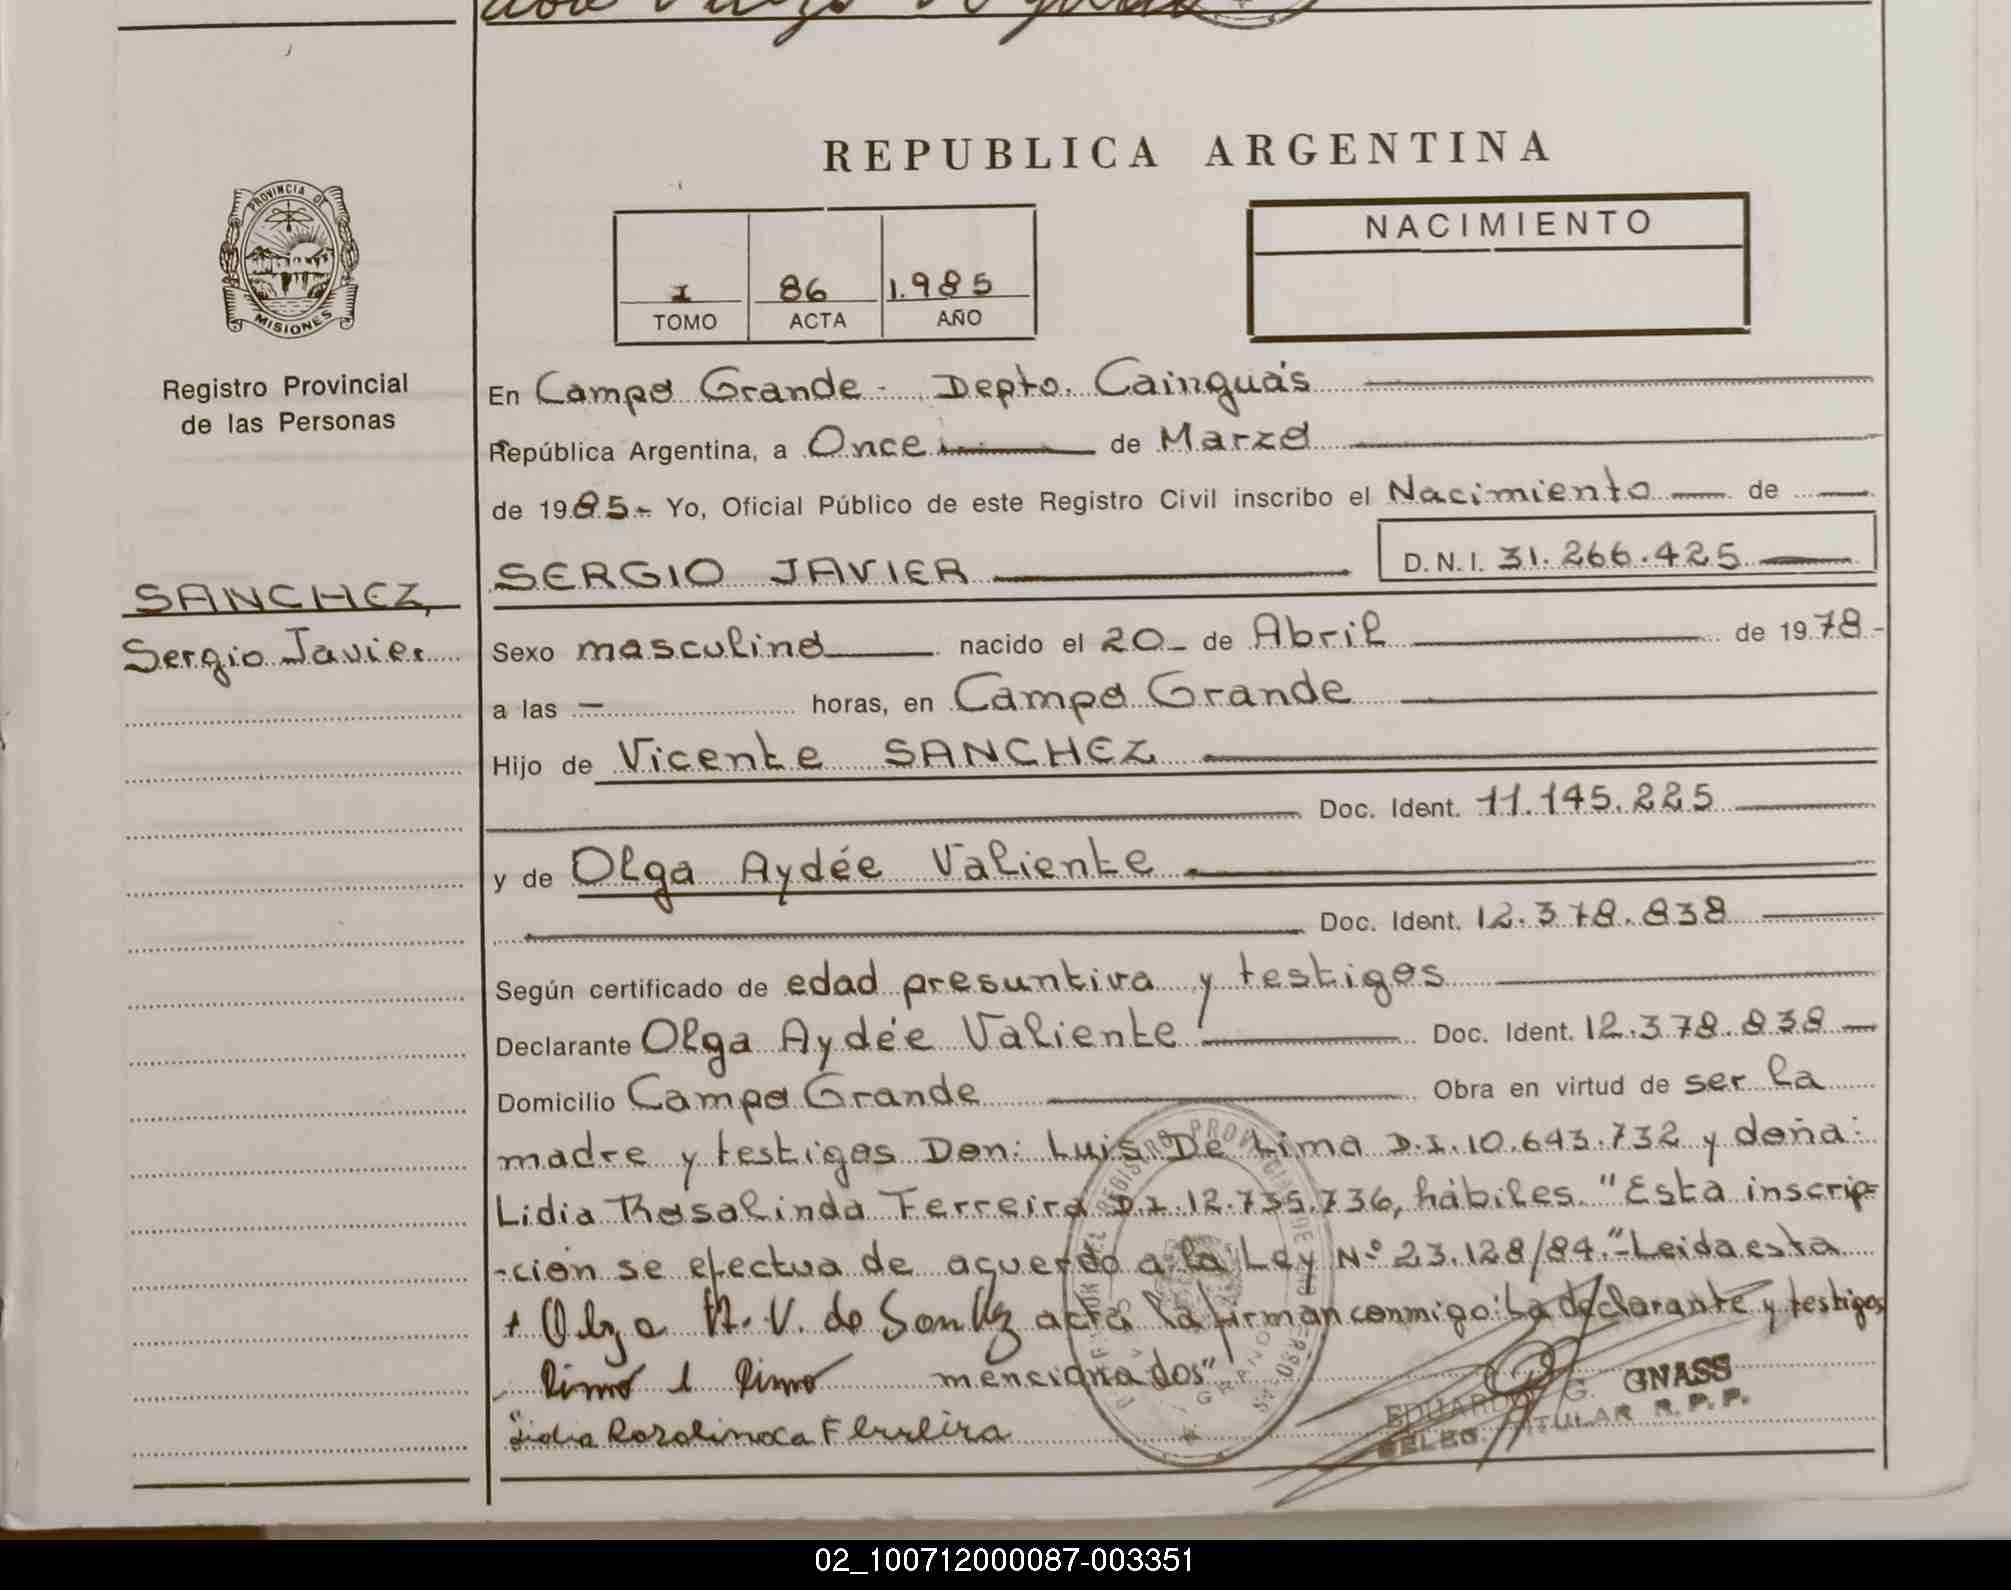 REPUBLICA ARGENTINA
PROVINCIA DE
MISIONES
Registro Provincial
de las Personas
I 86 1.985
TOMO ACTA AÑO
NACIMIENTO
En Campo Grande - Depto. Cainguás
República Argentina, a Once de Marzo
de 1985.- Yo, Oficial Público de este Registro Civil inscribo el Nacimiento de
SERGIO JAVIER D.N.I. 31.266.425
SANCHEZ,
Sergio Javier
Sexo masculino nacido el 20 de Abril de 1978-
a las — horas, en Campo Grande
Hijo de Vicente SANCHEZ
Doc. Ident. 11.145.225
y de Olga Aydée Valiente
Doc. Ident. 12.378.838
Según certificado de edad presuntiva y testigos
Declarante Olga Aydée Valiente Doc. Ident. 12.378.838
Domicilio Campo Grande Obra en virtud de ser la
madre y testigos Don: Luis De Lima D.I. 10.643.732 y doña:
Lidia Rosalinda Ferreira D.I. 12.735.736, hábiles. "Esta inscrip=
-ción se efectua de acuerdo a la Ley Nº 23.128/84."-Leida esta
+ Olga A. V. de acta la firman conmigo: La declarante y testigos
mencionados"
Lidia Ferreira
EDUARDO G. GNASS
DELEG. TITULAR R.P.P.
02_100712000087-003351